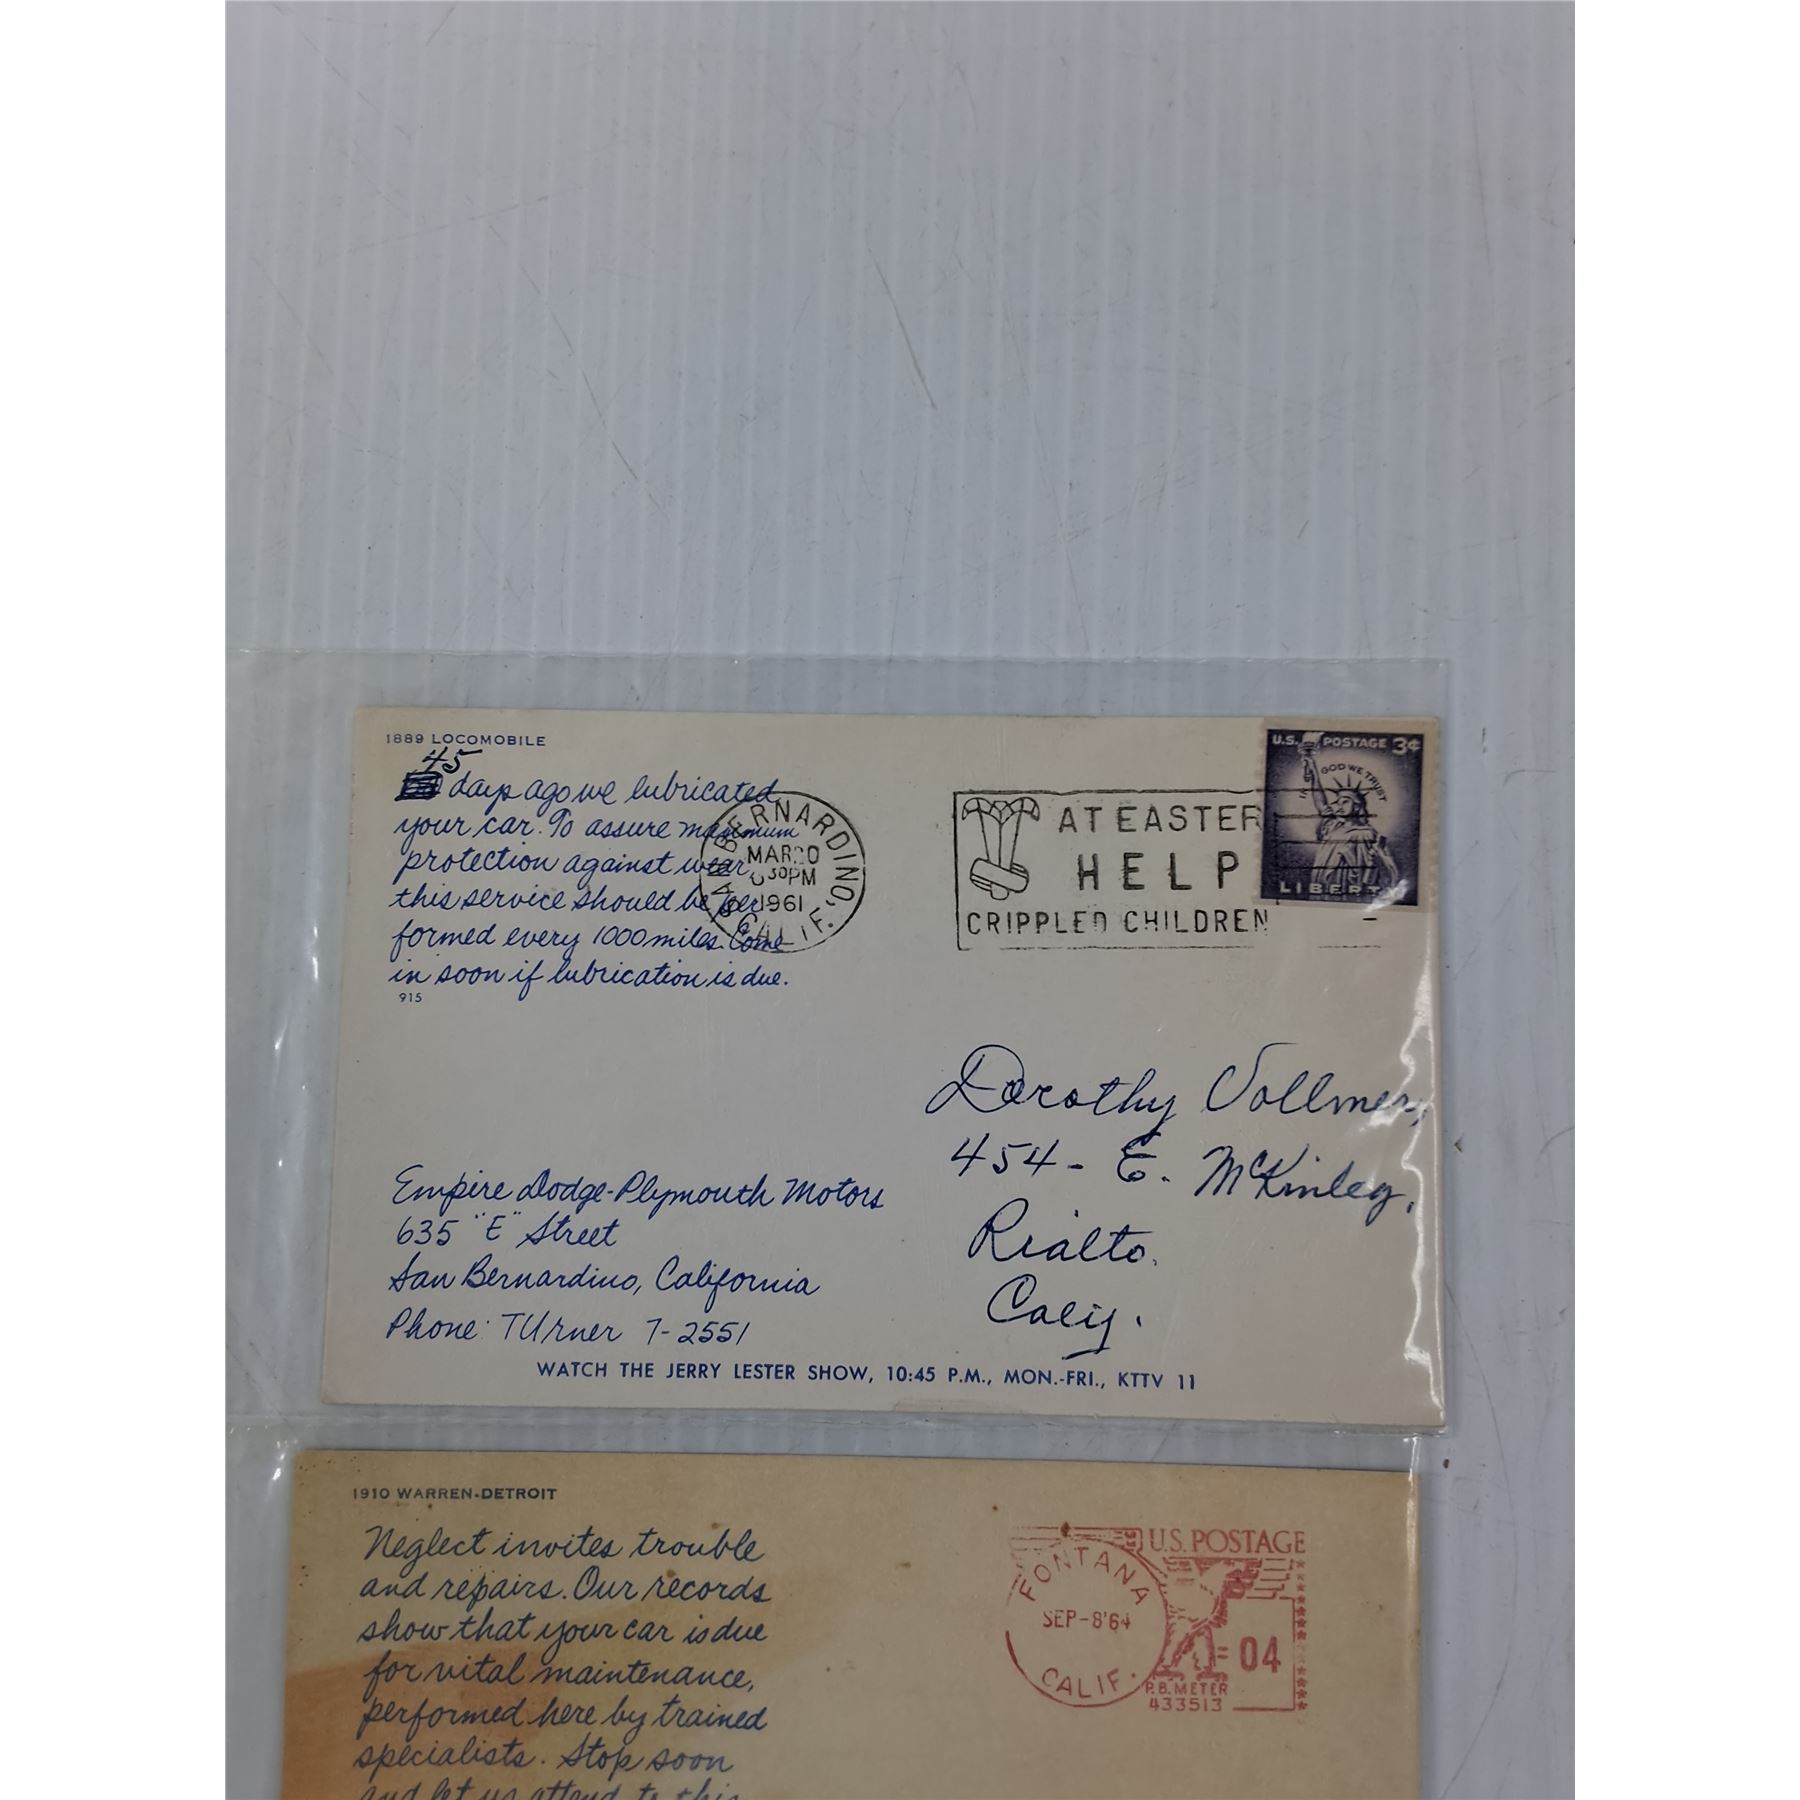 1889 LOCOMOBILE
45
days ago we lubricated
your car. To assure maximum
protection against wear
this service should be per
formed every 1000 miles. Come
in soon if lubrication is due.
915
SAN BERNARDINO, CALIF.
MAR 20
30 PM
1961
AT EASTER
HELP
CRIPPLED CHILDREN
U.S. POSTAGE 3¢
IN GOD WE TRUST
LIBERTY
Dorothy Vollmer,
454 - E. McKinley,
Rialto.
Calif.
Empire Dodge-Plymouth Motors
635 "E" Street
San Bernardino, California
Phone: TUrner 7-2551
WATCH THE JERRY LESTER SHOW, 10:45 P.M., MON.-FRI., KTTV 11
1910 WARREN-DETROIT
Neglect invites trouble
and repairs. Our records
show that your car is due
for vital maintenance,
performed here by trained
specialists. Stop soon
and let us attend to this
FONTANA
SEP-8'64
CALIF.
U.S. POSTAGE
04
P.B. METER
433513